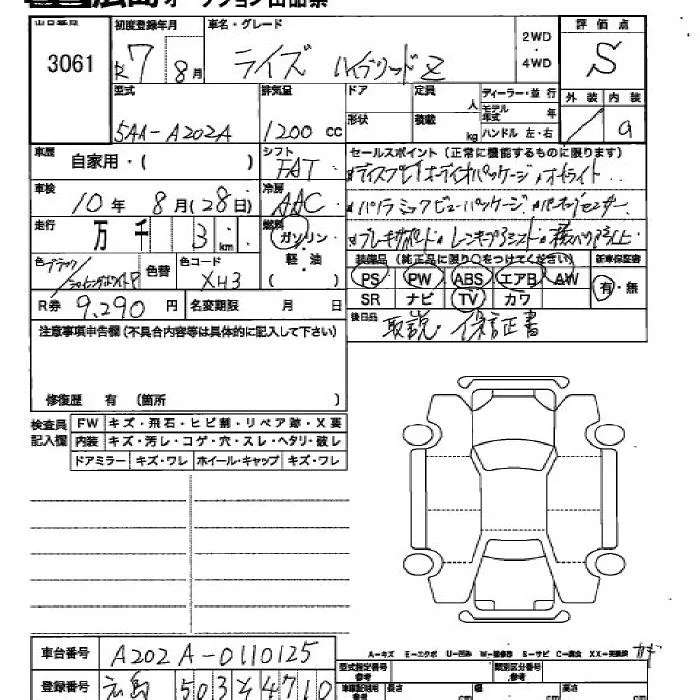 広島オークション出品票
出品番号 3061
初度登録年月 R7 8月
車名・グレード ライズ ハイブリッドZ
2WD・4WD
評価点 S
外装 内装 a
型式 5AA-A202A
排気量 1200 cc
ドア 形状
定員 人 積載 kg
ディーラー・並行
モデル年式 年
ハンドル 左・右
車歴 自家用・( )
シフト FAT
セールスポイント(正常に機能するものに限ります)
車検 10年8月(28日)
冷房 AAC
ディスプレイオーディオパッケージ オートライト
パノラミックビューパッケージ
走行 万 千 3 km
燃料 ガソリン・軽油 ( )
色 ブラック/シャイニングホワイトP
色替
色コード XH3
装備品(純正品に限り○をつけてください) 新車保証書
PS PW ABS エアB AW 有・無
SR ナビ TV カワ
R券 9,290 円 名変期限 月 日
後日品 取説・保証書
注意事項申告欄(不具合内容等は具体的に記入して下さい)
修復歴 有 (箇所 )
検査員記入欄
FW キズ・飛石・ヒビ割・リペア跡・X要
内装 キズ・汚レ・コゲ・穴・スレ・ヘタリ・破レ
ドアミラー キズ・ワレ ホイール・キャップ キズ・ワレ
車台番号 A202A-0110125
A-キズ E-エクボ U-凹み W-補修跡 S-サビ C-腐食 XX-交換済
型式指定番号 参考 類別区分番号 参考
登録番号 広島 503 そ 4710
車庫証明用 参考 長さ cm 幅 cm 高さ cm